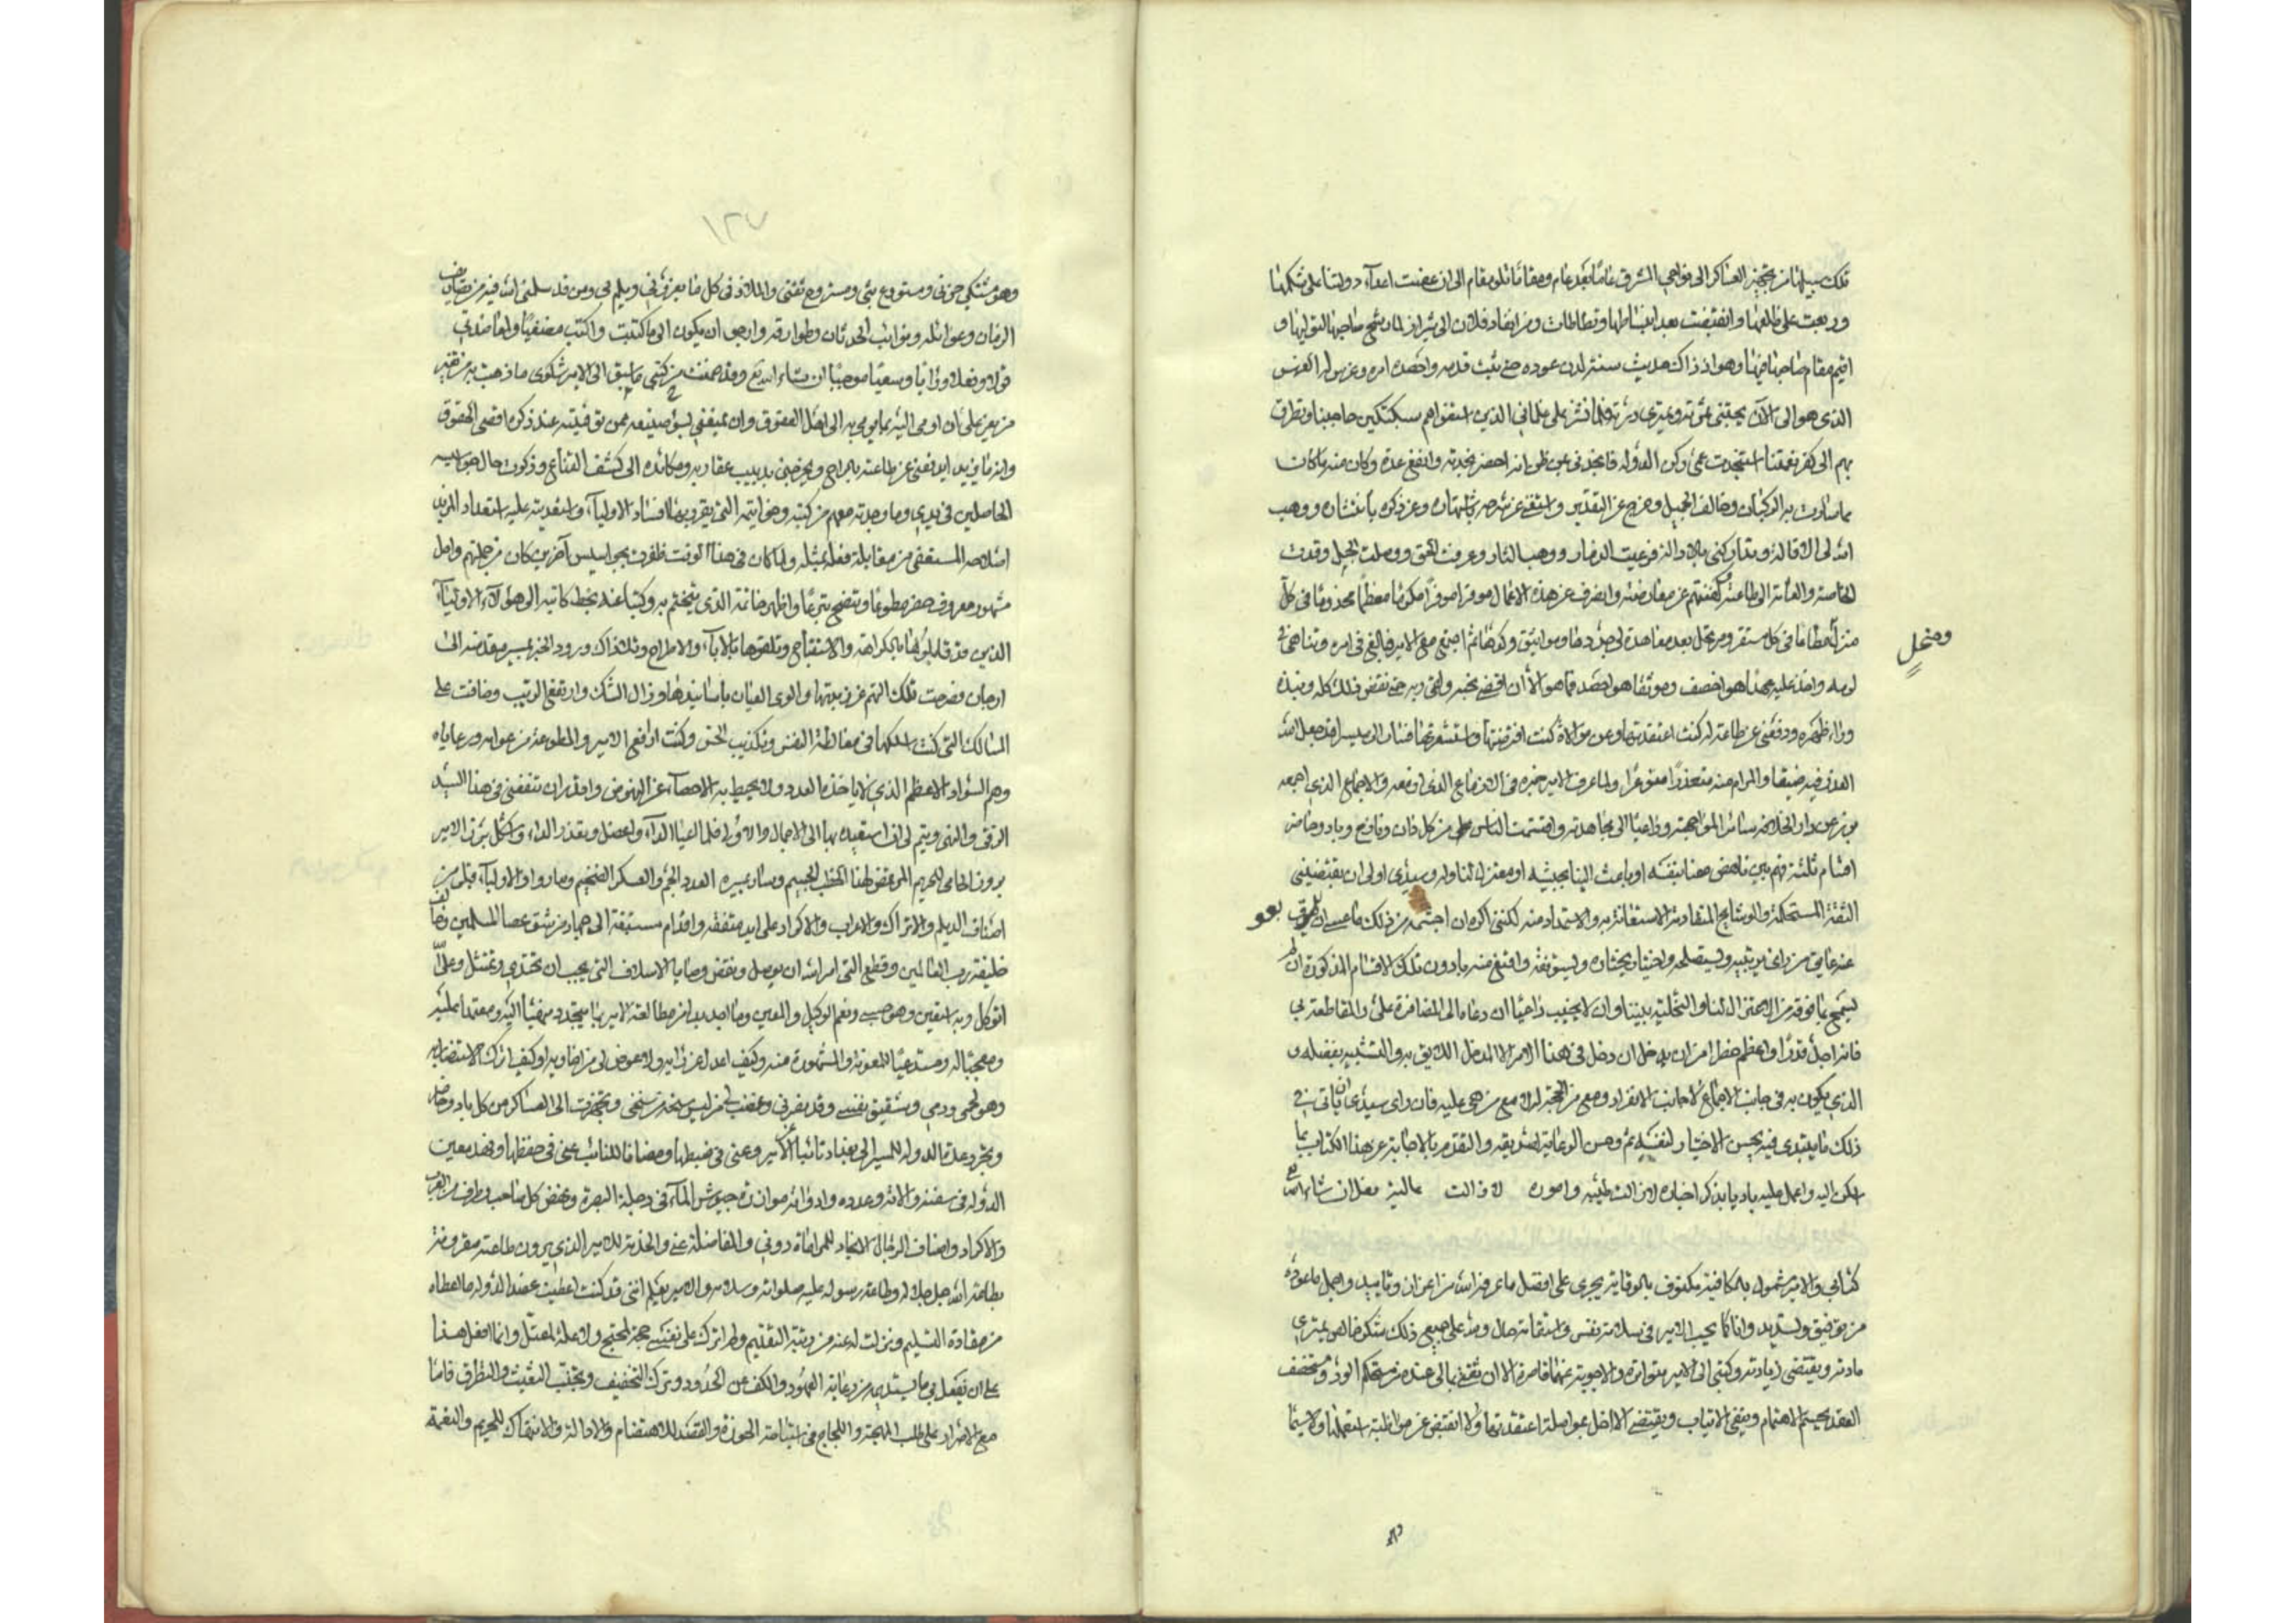 تلك سبيلها من تجهيز العساكر الى نواحي المشرق عاما بعد عام ومقاما تلو مقام الى ان غضت اعدآء دولتنا على شكلها
وربعت على ظلعها وانقبضت بعد انبساطها وتطاطات
اقيم مقام صاحبها فيها وهو اذ ذاك حديث سنه لدن عوده حتى ثبت قدمه واحصد امره وغرس له الغرس
الذى هو الى الآن يجتنى ثمرته ويمترى درته فلما نشز على غلماني الذين استغواهم سبكتكين حاجبنا وتطرق
بهم الى كفر نعمتنا استنجدت عمى ركن الدوله فانجدنى عن ظن انه احضر نجدته وانفع عدة وكان منه ما كان
مما سارت به الركبان وخالف الجميل وخرج عن التقدير واستغنى عن شرحه باشتهاره وعن ذكره بانتشاره ووهب
الله لى الاقالة وتداركنى بالادالة فرعيت الذمار ووهبت الثار وعرفت الحق ووصلت الحبل وقدت
الخاصة والعامة الى طاعته وكففتهم عن معارضته وانصرف عن هذه الاعمال موفرا موفورا مكرما معظما مخدوما فى كل
منزل معظما فى كل مستقر ومرتحل بعد معاهدة لى جددها ومواثيق وكدها ثم اجتمع مع الامير فبالغ فى امره وتناهى فى
ومرتحل
لومه واخذ عليه عهدا هو احصف وموثقا هو احصد فما هو الا ان اقضى نحبه ولقى ربه حتى نقض ذلك كله ونبذه
وراء ظهره ودفعنى عن طاعة له كنت اعتقدتها وعن موالاة كنت افترضتها واستشعرتها فسار الى مسيرا قد جعل الله
العذر فيه ضيقا والمرام منه متعذرا متوعرا ولما عرف الامير خبره فى الازماع الذى ازمعه والاجماع الذى اجمعه
برز عن دار الخلافه سائرا لمواجهته وداعيا الى مجاهدته وانقسمت الناس من كل دان ونازح وباد وحاضر
اقسام ثلثة فهم بين ناهض معنا بنفسه او باعث الينا بجيشه او معتزل لنا وله وسيدى اولى ان يقتضينى
الثقة المستحكمة والوشايج المتقادمة الاستعانة به والاستمداد منه لكننى اكره ان اجشمه من ذلك ما عسى ان
عنه عايق من راى يرتئيه ويستصلحه واختيار يختاره ويستوفقه واقنع منه بما دون تلك الاقسام المذكورة ان
يسمح بما فوقه من الاعتزال لنا والتخلية بيننا وان لا يجيب داعيا ان دعاه الى المضافرة على والمقاطعة بي
فانه اجل قدرا واعظم خطرا من ان يدخل ان دخل فى هذا الامر الا المدخل اللايق به والتشبيه بفضله و
الذى يكون به فى جانب الاجماع لا جانب الانفراد ومع من الحجة له لا مع من هى عليه فان راى سيدى ان ياتى فى
ذلك ما يقتدى فيه بحسن الاختيار لنفسه ثم وحسن الرعاية لصديقه والتقدم بالاجابة عن هذا الكتاب بما
اسكن اليه واعمل عليه باديا بذكر اخباره لا زالت طيبه واموره لا زالت عالية فعل ان شاء الله تع
كتابي والامير مشمول بالكافية مكنوف بالوقاية يجرى على افضل ما عرفه الله من اعزاز وتاييد واجمل ما عوده
من توفيق وتسديد وانا كما يحب الامير فى سلامة نفس واستقامة حال ولله على جميع ذلك شكر خالص يمترى
مادته ويقتضى زيادته وكتبى الى الامير متواتره والاجوبة عنها قاصرة الا ان ثقتى بما لى عنده من مستحكم الود ومستحصف
العقد يحسم الاهتمام وينفى الارتياب ويقتضى الا اخل بمواصلة اعتقدتها ولا انقبض عن مواظبة استعملتها ولا سيما
١٢٧
وهو مشتكى حزنى ومستودع بثى ومستروح ثقتى والملاذ فى كل ما يعرفنى ويلم بي ومن قد سلمنى الله فيه من تصاريف
الزمان وغوائله ونوائب الحدثان وطوارقه وارجو ان يكون الى ما كتبت واكتب مصغيا ولما ضدي
قولا وفعلا ورايا وسعيا موجبا ان شاء الله تع وقد ضمنت من كتبى ما سبق الى الامير شكوى ما ذهبت به من جهة
من يعز على ان اومى اليه بما يومى به الى اهل العقوق وان يميغنى بسوء صنيعه عمن توفيته عند ذكره اقصى الحقوق
وانه ما يزيد ان يدفعنى عن طاعته بالراح ويخرجنى بدبيب عقاربه ومكائده الى كشف القناع وذكرت حال جواسيسه
الحاصلين فى يدي وما وجدته معهم من كتبه وخواتيمه التى تقرد بهما افساد الاوليآء واستعديته عليه استعداد المريد
استصلاحه المستعفى من مقابلة فعله بمثله ولما كان فى هذا الوقت ظفرت بجواسيس آخرين كان من جملتهم رجل
مشهور معروف حضر مطوعا وتنصح متبرعا واظهر خاتمه الذى يختم به وكتبا عنه بخط كاتبه الى هؤلآء الاوليآء
الذين قد قابلوها بالكراهة والاستقباح وتلقوها بالابآء والاطراح وتلا ذاك ورود الخبر بمسير مقدمته الى
ارجان وضرحت تلك التهم عن زبدتها والوى العيان باسانيدها وزال الشك وارتفع الريب وضاقت على
المسالك التى كنت اسلكها فى مغالطة النفس وتكذيب الحس وكنت ادافع الامير والمطوعة من عوامه ورعاياه
وهم السواد الاعظم الذى لا ياخذه العدد ولا يحيط به الاحصآء عن النهوض واقدر ان تنفعنى فى هذا السيد
الرقى والمنى ويتم لى ان استقيده بها الى الاجمال والاولى فلما اعيا الدآء واعضل وتعذر الدواء واشكل برز الامير
بروز الحامى للحريم المرتمض لهذا الخطب الجسيم وسار بمسيره العدد الجم والعسكر الضخم وصاروا الاوليآء قبلى من
اصناف الديلم والاتراك والاعراب والاكراد على ايد متفقه واقدام مستبقة الى جهاد من شق عصا المسلمين وخالف
خليفة رب العالمين وقطع التى امر الله ان يوصل ونقض وصايا الاسلاف التى يجب ان تحتذى وتمتثل وعلى الله
اتوكل وبه استعين وهو حسبى ونعم الوكيل والمعين وما اجد بدا من مطالعة الامير بما يتجدد مفضيا اليه ومعتمدا عليه
ومعجبا له ومستدعيا للمعونة والمشورة منه وكيف اعدل عن رايه ولا عوض لى من اضاويه او كيف اترك الاستضاية به
وهو لحمى ودمى وشقيق نفسى وقد نفر لى وغضب لى من ليس سنخه سنخى وتجهزت الى العساكر من كل باد وحاضر
وتجرد عدة الدوله للمسير الى بغداد نائبا عن الامير وعنى فى ضبطها ومضافا للنائب عنى فى حفظها ونهد معين
الدوله فى سفنه والاته وعدده وادواته موازنة جيوش المآء فى دجلة البصرة ونهض كل صاحب طرف من العرب
والاكراد واصناف الرجال الانجاد للمراماة دونى والمفاضلة عنى والخدمة للامير الذي يرون طاعته مقرونة
بطاعة الله جل جلاله وطاعة رسوله عليه صلواته وسلامه والامير يعلم اننى قد كنت اعطيت عضد الدوله ما اعطاه
من مقادة التسليم ونزلت له عنه من رتبة التقديم ولم اترك على نفسى حجة لمحتج ولا علة لمعتل وانما افعل هذا
على ان يفعل بي ما يستديمه من رعاية العهود والكف عن الحدود وترك التحفيف وتجنب التغيث والتطرق فاما
مع الاصرار على طلب المهجة واللجاج فى استباحة الحوزة والقصد للاهتضام والاذالة والانتهاك للحريم والنعمة